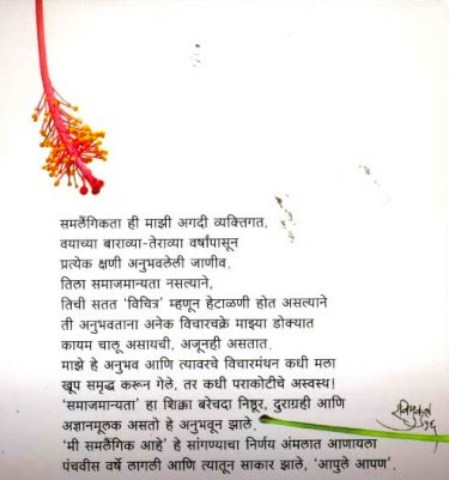 समलैंगिकता ही माझी अगदी व्यक्तिगत,
वयाच्या बाराव्या-तेराव्या वर्षांपासून
प्रत्येक क्षणी अनुभवलेली जाणीव.
तिला समाजमान्यता नसल्याने,
तिची सतत 'विचित्र' म्हणून हेटाळणी होत असल्याने
ती अनुभवताना अनेक विचारचक्रे माझ्या डोक्यात
कायम चालू असायची, अजूनही असतात.
माझे हे अनुभव आणि त्यावरचे विचारमंथन कधी मला
खूप समृद्ध करून गेले, तर कधी पराकोटीचे अस्वस्थ!
'समाजमान्यता' हा शिक्का बरेचदा निष्ठूर, दुराग्रही आणि
अज्ञानमूलक असतो हे अनुभवून झाले.
'मी समलैंगिक आहे' हे सांगण्याचा निर्णय अंमलात आणायला
पंचवीस वर्षे लागली आणि त्यातून साकार झाले, 'आपुले आपण'.